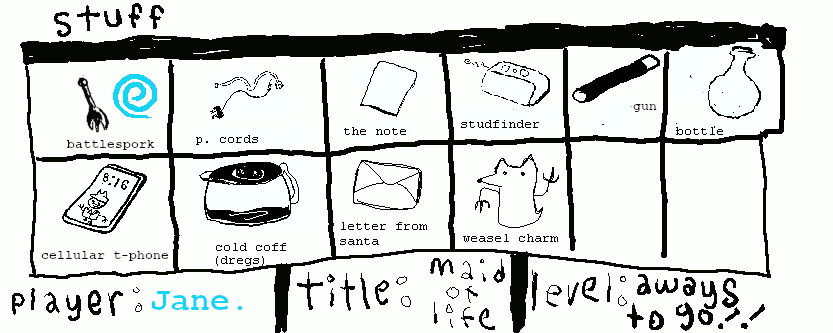 stuff
battlespork
p. cords
the note
studfinder
gun
bottle
8:16
cellular t-phone
cold coff
(dregs)
letter from
santa
weasel charm
player: Jane.
title: maid
of
life
level: aways
to go!!